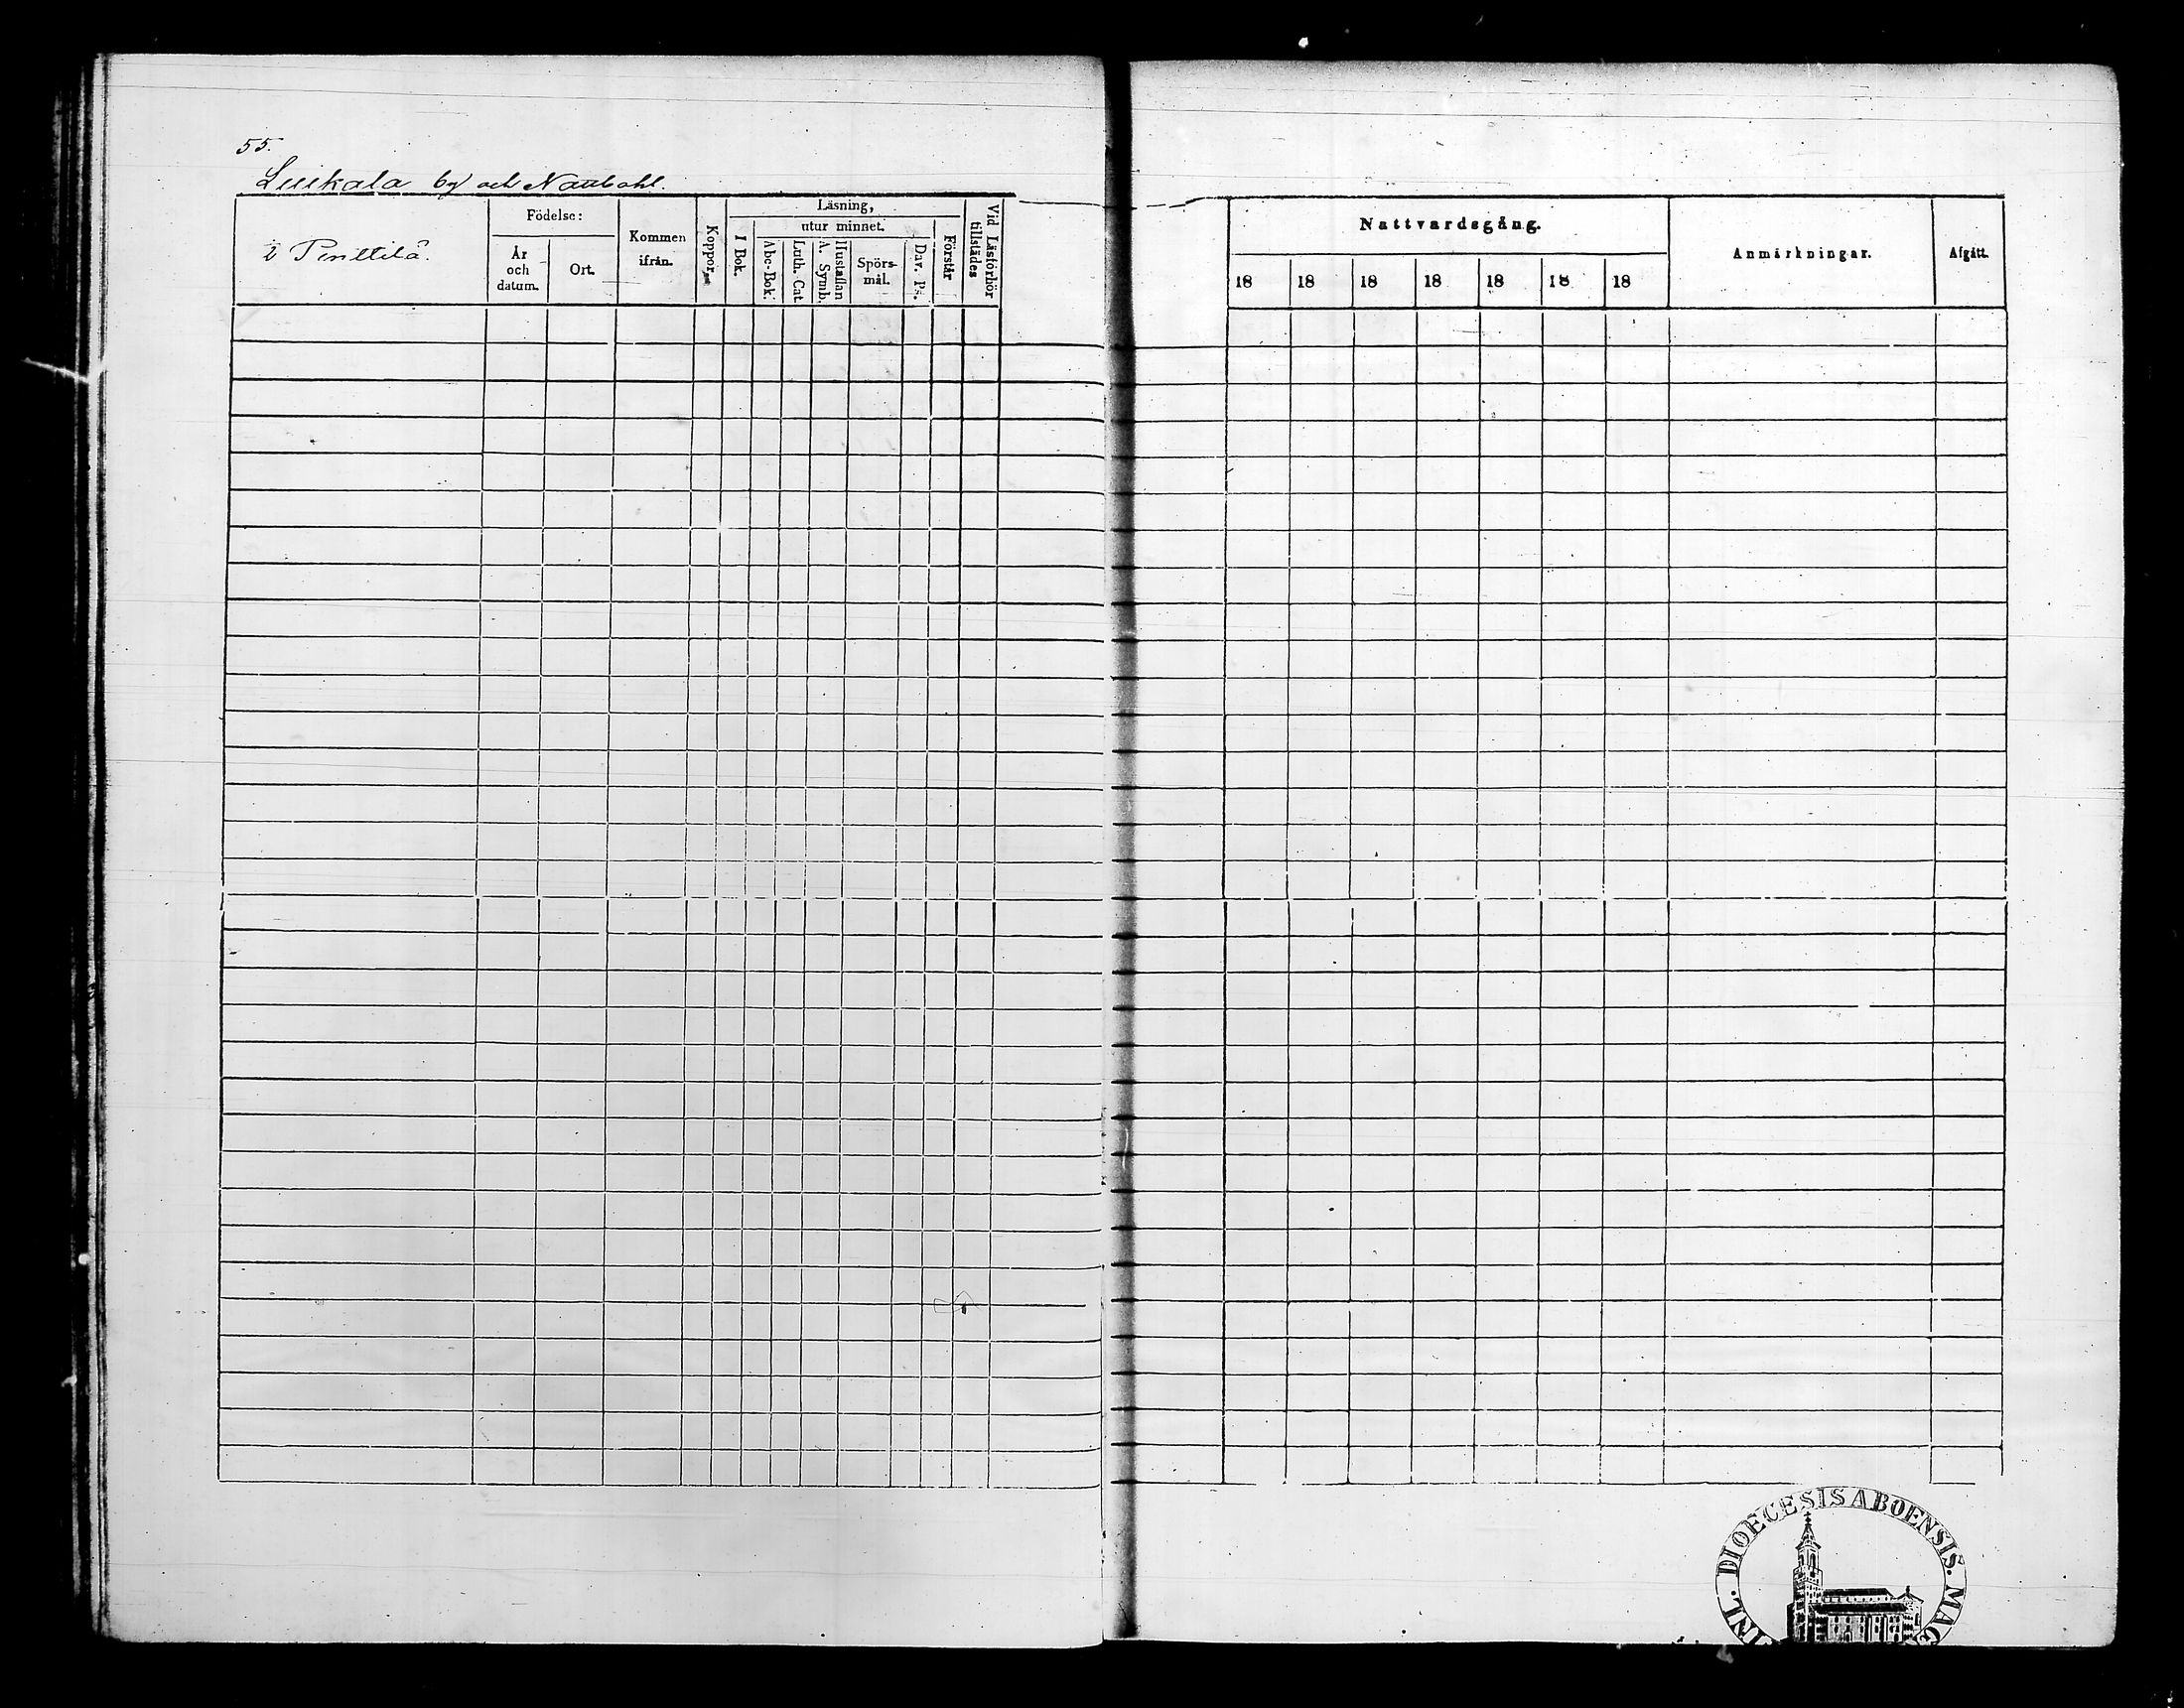 55.
Luikala by och Nautsohl.
2 Penttilä.
Födelse:
År och datum.
Ort.
Kommen ifrån.
Koppor,
Läsning,
I Bok.
utur minnet.
Abc-Bok.
Luth. Cat
Hustaflan A. Symb.
Spörs-mål.
Dav. Ps.
Förstår
Vid Läsförhör tillstädes
Nattvardsgång.
18 18 18 18 18 18 18
Anmärkningar.
Afgått.
DIOECESIS ABOENSIS.